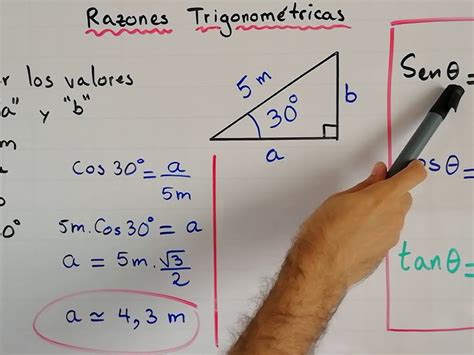 Razones Trigonométricas
r los valores
a" y "b"
m
0°
Cos 30° = a
5m
5m . Cos 30° = a
a = 5m . √3
2
a ≃ 4,3 m
5 m
30°
b
a
Sen θ =
os θ =
tan θ =